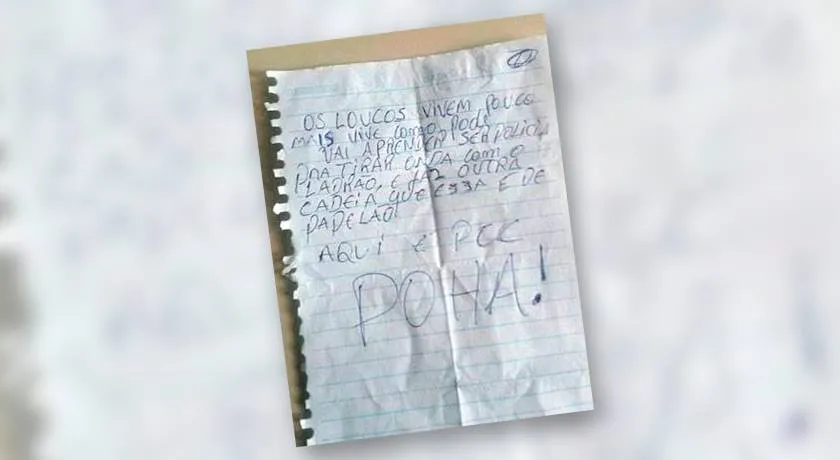 OS LOUCOS VIVEM POUCO
MAIS VIVE COMO PODE
VAI APRENDER SER POLICIA
PRA TIRAR ONDA COM O
LADRÃO, E FAZ OUTRA
CADEIA QUE ESSA É DE
PAPELAO!
AQUI É PCC
POHA!